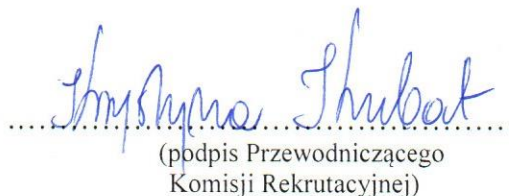 Krystyna
(podpis Przewodniczącego
Komisji Rekrutacyjnej)